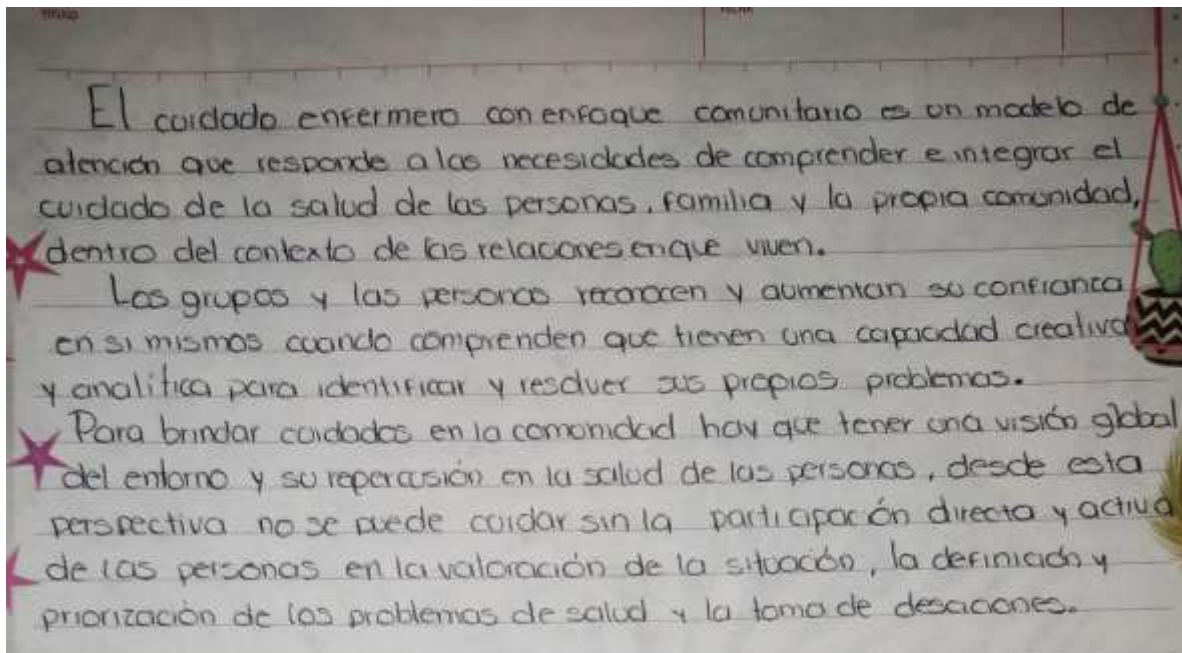 TITULO
El cuidado enfermero con enfoque comunitario es un modelo de
atención que responde a las necesidades de comprender e integrar el
cuidado de la salud de las personas, familia y la propia comunidad,
dentro del contexto de las relaciones en que viven.
Los grupos y las personas reconocen y aumentan su confianca
en si mismos cuando comprenden que tienen una capacidad creativa
y analitica para identificar y resolver sus propios problemas.
Para brindar cuidados en la comunidad hay que tener una visión global
del entorno y su repercusión en la salud de las personas, desde esta
perspectiva no se puede cuidar sin la participación directa y activa
de las personas en la valoración de la situación, la definición y
priorización de los problemas de salud y la toma de desaciones.